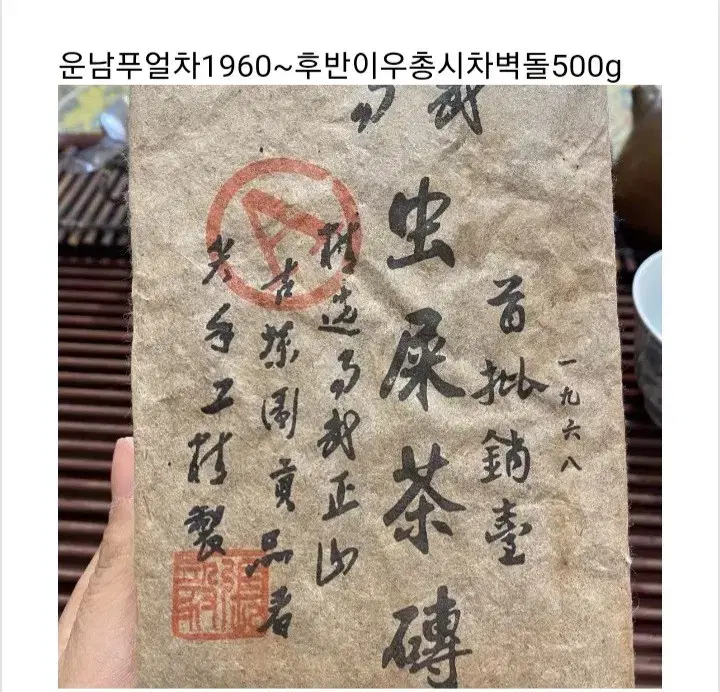 운남푸얼차1960~후반이우총시차벽돌500g
一九六八
首批銷臺
易武
虫屎茶磚
精选易武正山
古茶園貢品者
手工精製
A